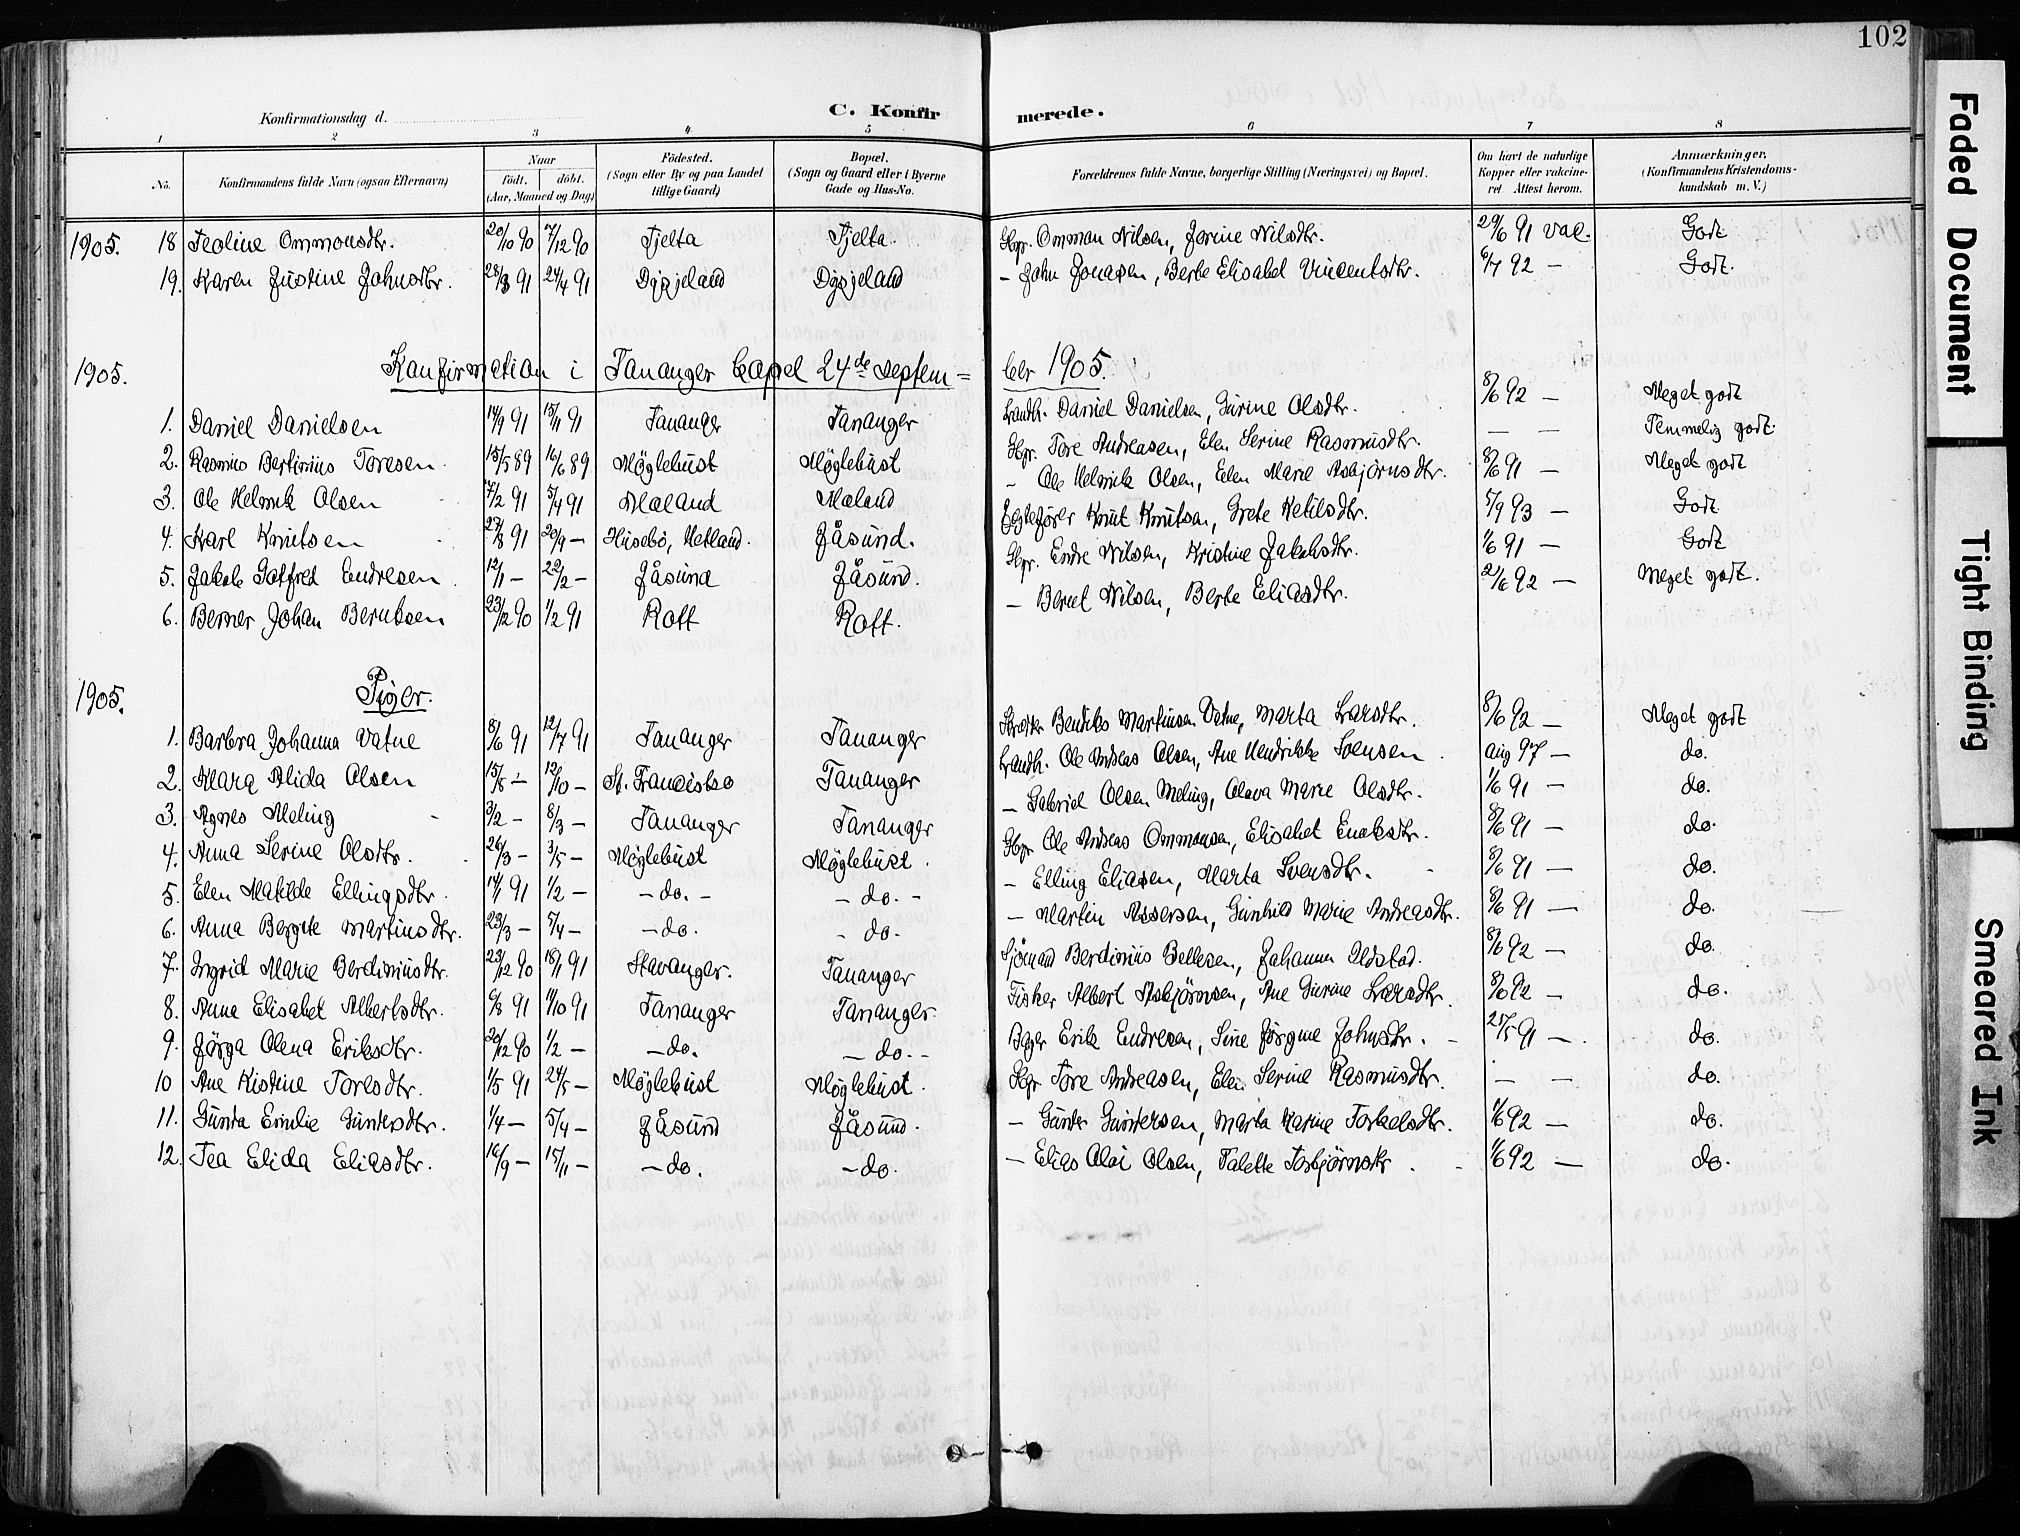 102
Konfirmationsdag d.
C. Konfirmerede.
1 2 3 4 5 6 7 8
No. Konfirmandens fulde Navn (ogsaa Efternavn) Naar født, døbt. (Aar, Maaned og Dag) Fødested. (Sogn eller By og paa Landet tillige Gaard) Bopæl. (Sogn og Gaard eller i Byerne Gade og Hus-No. Forældrenes fulde Navne, borgerlige Stilling (Næringsvei) og Bopæl. Om havt de naturlige Kopper eller vakcineret. Attest herom. Anmærkninger. (Konfirmandens Kristendomskundskab m. V.)
1905. 18 Teoline Ommonsdtr. 20/10 90 7/12 90 Tjelta Tjelta. Gbr. Ommon Nilsen, Jorine Nilsdtr. 29/6 91 vac. Godt
19. Karen Justine Johnsdtr. 28/3 91 24/4 91 Dysjeland Dysjeland – John Jonasen, Berte Elisabet Vincentsdtr. 6/7 92 – Godt.
1905. Konfirmation i Tananger Capel 24de Septem=ber 1905.
1. Daniel Danielsen 14/9 91 15/11 91 Tananger Tananger Landh. Daniel Danielsen, Gurine Olsdtr. 8/6 92 – Meget godt
2. Rasmus Bertinius Toresen 15/5 89 16/6 89 Møglebust Møglebust Gbr. Tore Andreasen, Elen Serine Rasmusdtr. – – Temmelig godt.
3. Ole Helmik Olsen 7/2 91 5/4 91 Mæland Mæland – Ole Helmik Olsen, Elen Marie Asbjørnsdtr. 8/6 91 – Meget godt
4. Karl Knutsen 27/8 91 20/9 – Hisebø, Hetland. Jåsund. Knut Knutsen, Grete Ketilsdtr. 5/9 93 – Godt
5. Jakob Gotfred Endresen 12/1 – 22/2 – Jåsund Jåsund. Gbr. Endre Nilsen, Kristine Jakobsdtr. 1/6 91 – Godt
6. Berner Johan Berntsen 23/12 90 1/2 91 Rott Rott. – Bernt Nilsen, Berte Eliasdtr. 2/6 92 – Meget godt.
1905. Piger.
1. Barbra Johanna Vatne 8/6 91 12/7 91 Tananger Tananger Bendiks Martinsen Vatne, Marta Larsdtr. 8/6 92 – Meget godt
2. Mary Alida Olsen 15/8 – 12/10 – St. Francisko Tananger Landh. Ole Andreas Olsen, Ane Hendrikke Svensen aug 97 – do.
3. Agnes Meling 3/2 – 8/3 – Tananger Tananger – Gabriel Olsen Meling, Olava Marie Olsdtr. 1/6 91 – do.
4. Anna Serine Olsdtr. 26/3 – 3/5 – Møglebust Møglebust. Gbr Ole Andreas Ommonsen, Elisabet Enoksdtr. 8/6 91 – do.
5. Elen Matilde Ellingsdtr. 14/1 91 1/2 – – do. – – do. – – Elling Eliasen, Marta Svensdtr. 8/6 91 – do.
6. Anna Bergite Martinsdtr. 23/3 – 5/4 – – do. – do. – Martin Assersen, Gunhild Marie Andreasdtr. 8/6 91 – do.
7. Ingrid Marie Berdiniusdtr. 23/12 90 18/1 91 Stavanger. Tananger Sjømand Berdinius Bellesen, Johanna Oldstad. 8/6 92 – do.
8. Anna Elisabet Albertsdtr. 6/8 91 11/10 91 Tananger Tananger. Fisker Albert Asbjørnsen, Ane Gurine Larsdtr. 8/6 92 – do.
9. Jørga Olena Eriksdtr. 20/12 90 1/2 – – do. – do. – Bager Erik Endresen, Sine Jørgine Johnsdtr. 25/5 91 –. do.
10 Ane Kistine Toresdtr. 1/5 91 24/5 – Møglebust Møglebust. Gbr Tore Andreasen, Elen Serine Rasmusdtr. – – do.
11. Gunda Emilie Guntersdtr. 1/4 – 5/4 – Jåsund Jåsund. – Gunter Guntersen, Marta Karine Torkelsdtr. 1/6 92 – do.
12. Tea Elida Eliasdtr. 16/9 – 15/11 – – do. – do. – Elias Olai Olsen, Talette Torbjørnsdtr. 1/6 92 – do.
Faded Document
Tight Binding
Smeared Ink